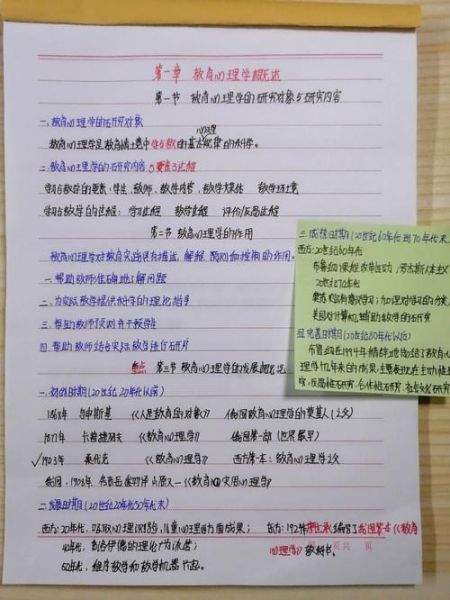 第一章 教育心理学概述
第一节 教育心理学的研究对象与研究内容
一、教育心理学的研究对象
心理
教育心理学是教育情境中学与教的基本规律的科学。
二、教育心理学的研究内容 5要素3过程
学习与教学的要素:学生、教师、教学内容、教学媒体 教学环境
学习与教学的过程:学习过程 教学过程 评价/反思过程
第二节 教育心理学的作用
教育心理学对教育实践具有描述、解释、预测和控制的作用。
一、帮助教师准确地了解问题
二、为实际教学提供科学的理论指导
三、帮助教师预测并干预学生
四、帮助教师结合实际教学进行研究
重点 第三节 教育心理学的发展概况
一、初创时期(20世纪20年代以前)
1868年 乌申斯基 《人是教育的对象》 俄国教育心理学的奠基人(之父)
1877年 卡普捷列夫 《教育心理学》 俄国第一部(世界最早)
✓1903年 桑代克 《教育心理学》 西方第一本;教育心理学之父
我国,1908年 房东岳 小泉又一《教育实用心理学》
二、发展时期(20世纪20年代50年代末)
西方:20年代,吸取心理 儿童心理 方面成果;
40年代,弗洛伊德的理论广为流传;
60年代,程序教学和教学机器兴起。
我国:1924年廖世承编写了我国第一本《教育
心理学》教科书。
三.成熟时期(20世纪60年代到70年代末
西方:20世纪60年代
布鲁纳 课程改革运动,罗杰斯人本主义
20世纪70年代
奥苏 意义学习;加 对学习的分类
美国对计算机辅助教学的研究
四.完善时期(20世纪80年代以后)
布鲁纳在1994年精辟地总结了教育心
理学十几年来的成果,主要表现在主动性研
究,反思性研究,合作性研究,社会文化研究